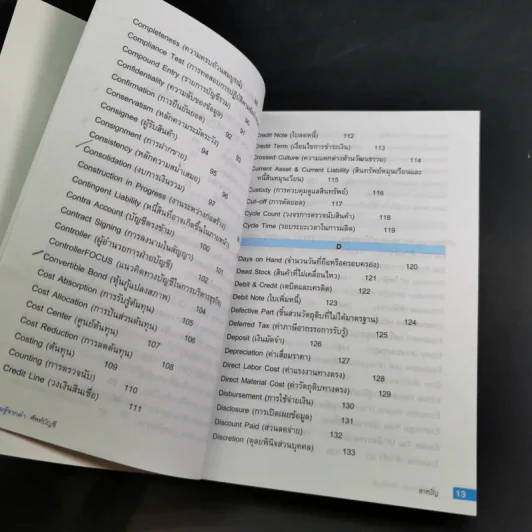 Completeness (ความครบถ้วนสมบูรณ์)
Compliance Test (การทดสอบการปฏิบัติตาม
Compound Entry (รายการบัญชีรวม)
Confidentiality (ความลับของข้อมูล)
Confirmation (การยืนยันยอด)
Conservatism (หลักความระมัดระวัง)
Consignee (ผู้รับสินค้า) 94
Consignment (การฝากขาย) 95
Consistency (หลักความสม่ำเสมอ)
Consolidation (งบการเงินรวม) 96
Construction in Progress (งานระหว่างก่อสร้าง)
Contingent Liability (หนี้สินที่อาจเกิดขึ้นในภายหน้า)
Contra Account (บัญชีตรงข้าม)
Contract Signing (การลงนามในสัญญา) 100
Controller (ผู้อำนวยการฝ่ายบัญชี) 101
ControllerFOCUS (แนวคิดทางบัญชีในการบริหารธุรกิจ)
Convertible Bond (หุ้นกู้แปลงสภาพ)
Cost Absorption (การรับรู้ต้นทุน) 104
Cost Allocation (การปันส่วนต้นทุน)
Cost Center (ศูนย์ต้นทุน) 106
Cost Reduction (การลดต้นทุน) 107
Costing (ต้นทุน) 109 108
Counting (การตรวจนับ) 110
Credit Line (วงเงินสินเชื่อ) 111
ศัพท์บัญชี
Credit Note (ใบลดหนี้) 112
Credit Term (เงื่อนไขการชำระเงิน) 113
Crossed Culture (ความแตกต่างด้านวัฒนธรรม) 114
Current Asset & Current Liability (สินทรัพย์หมุนเวียนและ
หนี้สินหมุนเวียน) 115
Custody (การควบคุมดูแลสินทรัพย์) 116
Cut-off (การตัดยอด) 117
Cycle Count (วงจรการตรวจนับสินค้า) 118
Cycle Time (รอบระยะเวลาในการผลิต) 119
D
Days on Hand (จำนวนวันที่ถือหรือครอบครอง) 120
Dead Stock (สินค้าที่ไม่เคลื่อนไหว) 121
Debit & Credit (เดบิตและเครดิต) 122
Debit Note (ใบเพิ่มหนี้) 123
Defective Part (ชิ้นส่วนวัตถุดิบที่ไม่ได้มาตรฐาน) 124
Deferred Tax (ค่าภาษีรอการรับรู้) 125
Deposit (เงินมัดจำ) 126
Depreciation (ค่าเสื่อมราคา) 127
Direct Labor Cost (ค่าแรงงานทางตรง) 128
Direct Material Cost (ค่าวัตถุดิบทางตรง) 129
Disbursement (การใช้จ่ายเงิน) 130
Disclosure (การเปิดเผยข้อมูล) 131
Discount Paid (ส่วนลดจ่าย) 132
Discretion (ดุลยพินิจส่วนบุคคล) 133
สารบัญ 13